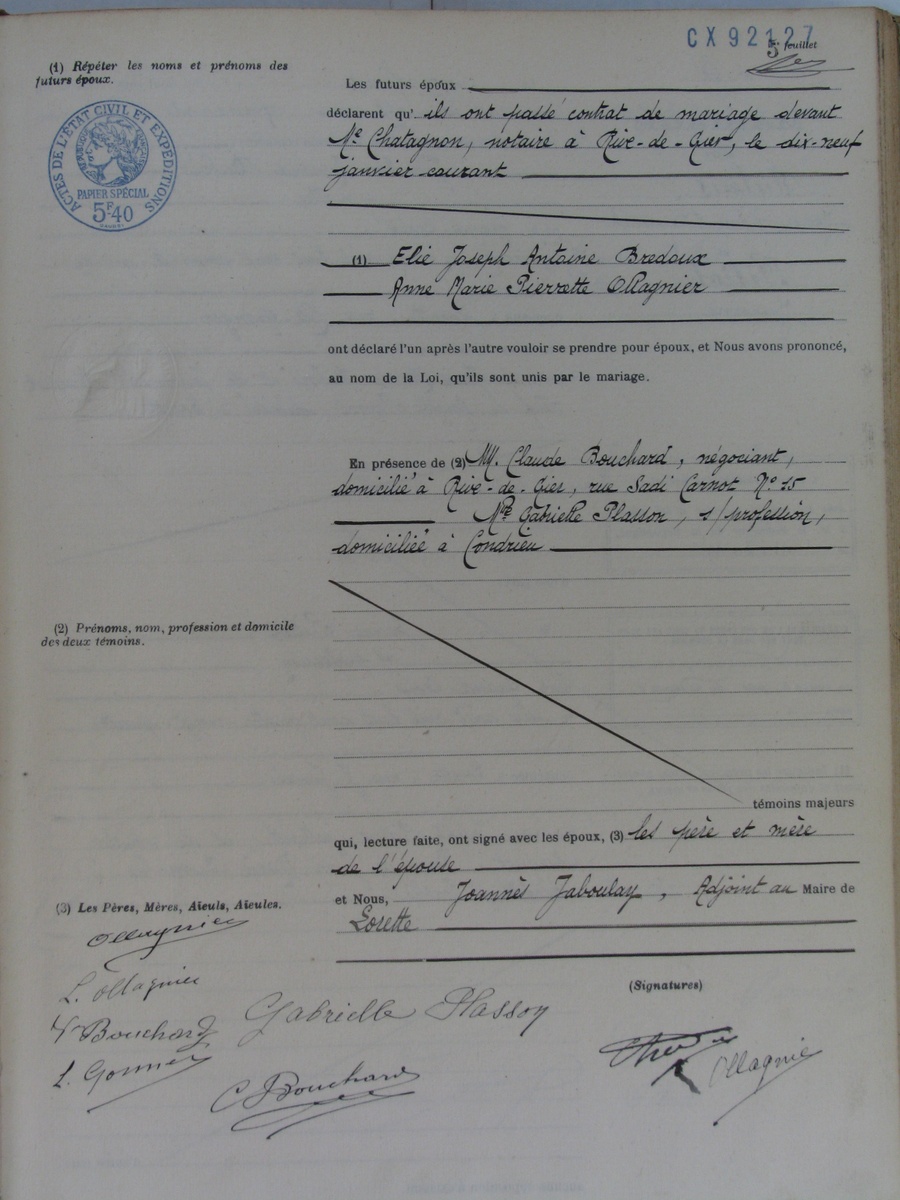 CX 92127
5e feuillet
(1) Répéter les noms et prénoms des
futurs époux.
ACTES DE L'ÉTAT CIVIL ET EXPÉDITIONS
PAPIER SPÉCIAL
5F.40
Les futurs époux
déclarent qu'ils ont passé contrat de mariage devant
Me Chatagnon, notaire à Rive-de-Gier, le dix-neuf
janvier courant
(1) Elie Joseph Antoine Bredoux
Anne Marie Pierrette Ollagnier
ont déclaré l'un après l'autre vouloir se prendre pour époux, et Nous avons prononcé,
au nom de la Loi, qu'ils sont unis par le mariage.
En présence de (2) MM. Claude Bouchard, négociant,
domicilié à Rive-de-Gier, rue Sadi Carnot No 15
Mlle Gabrielle Plasson, s/profession,
domiciliée à Condrieu
(2) Prénoms, nom, profession et domicile
des deux témoins.
témoins majeurs
qui, lecture faite, ont signé avec les époux, (3) les père et mère
de l'épouse
et Nous, Joannès Jaboulay, Adjoint au Maire de
Lorette
(3) Les Pères, Mères, Aïeuls, Aïeules.
(Signatures)
Ollagnier
L. Ollagnier
Bouchard
L. Gonnet
Gabrielle Plasson
C Bouchard
Ollagnier